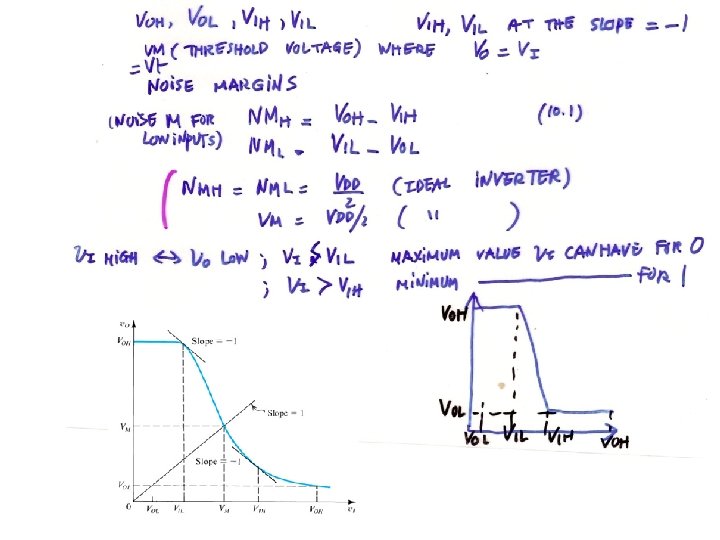 VOH, VOL, VIH, VIL VIH, VIL AT THE SLOPE = -1
VM (THRESHOLD VOLTAGE) WHERE Vo = VI
= Vt
NOISE MARGINS
(NOISE M FOR NMH = VOH - VIH (10.1)
LOW INPUTS) NML = VIL - VOL
NMH = NML = VDD/2 (IDEAL INVERTER)
VM = VDD/2 ( " )
VI HIGH ↔ Vo LOW ; VI < VIL MAXIMUM VALUE VI CAN HAVE FOR 0
; VI > VIH MINIMUM ———— FOR 1
vO
VOH
Slope = -1
VM
Slope = 1
Slope = -1
VOL
0 VOL VIL VM VIH VOH vI
VOH
VOL
VOL VIL VIH VOH